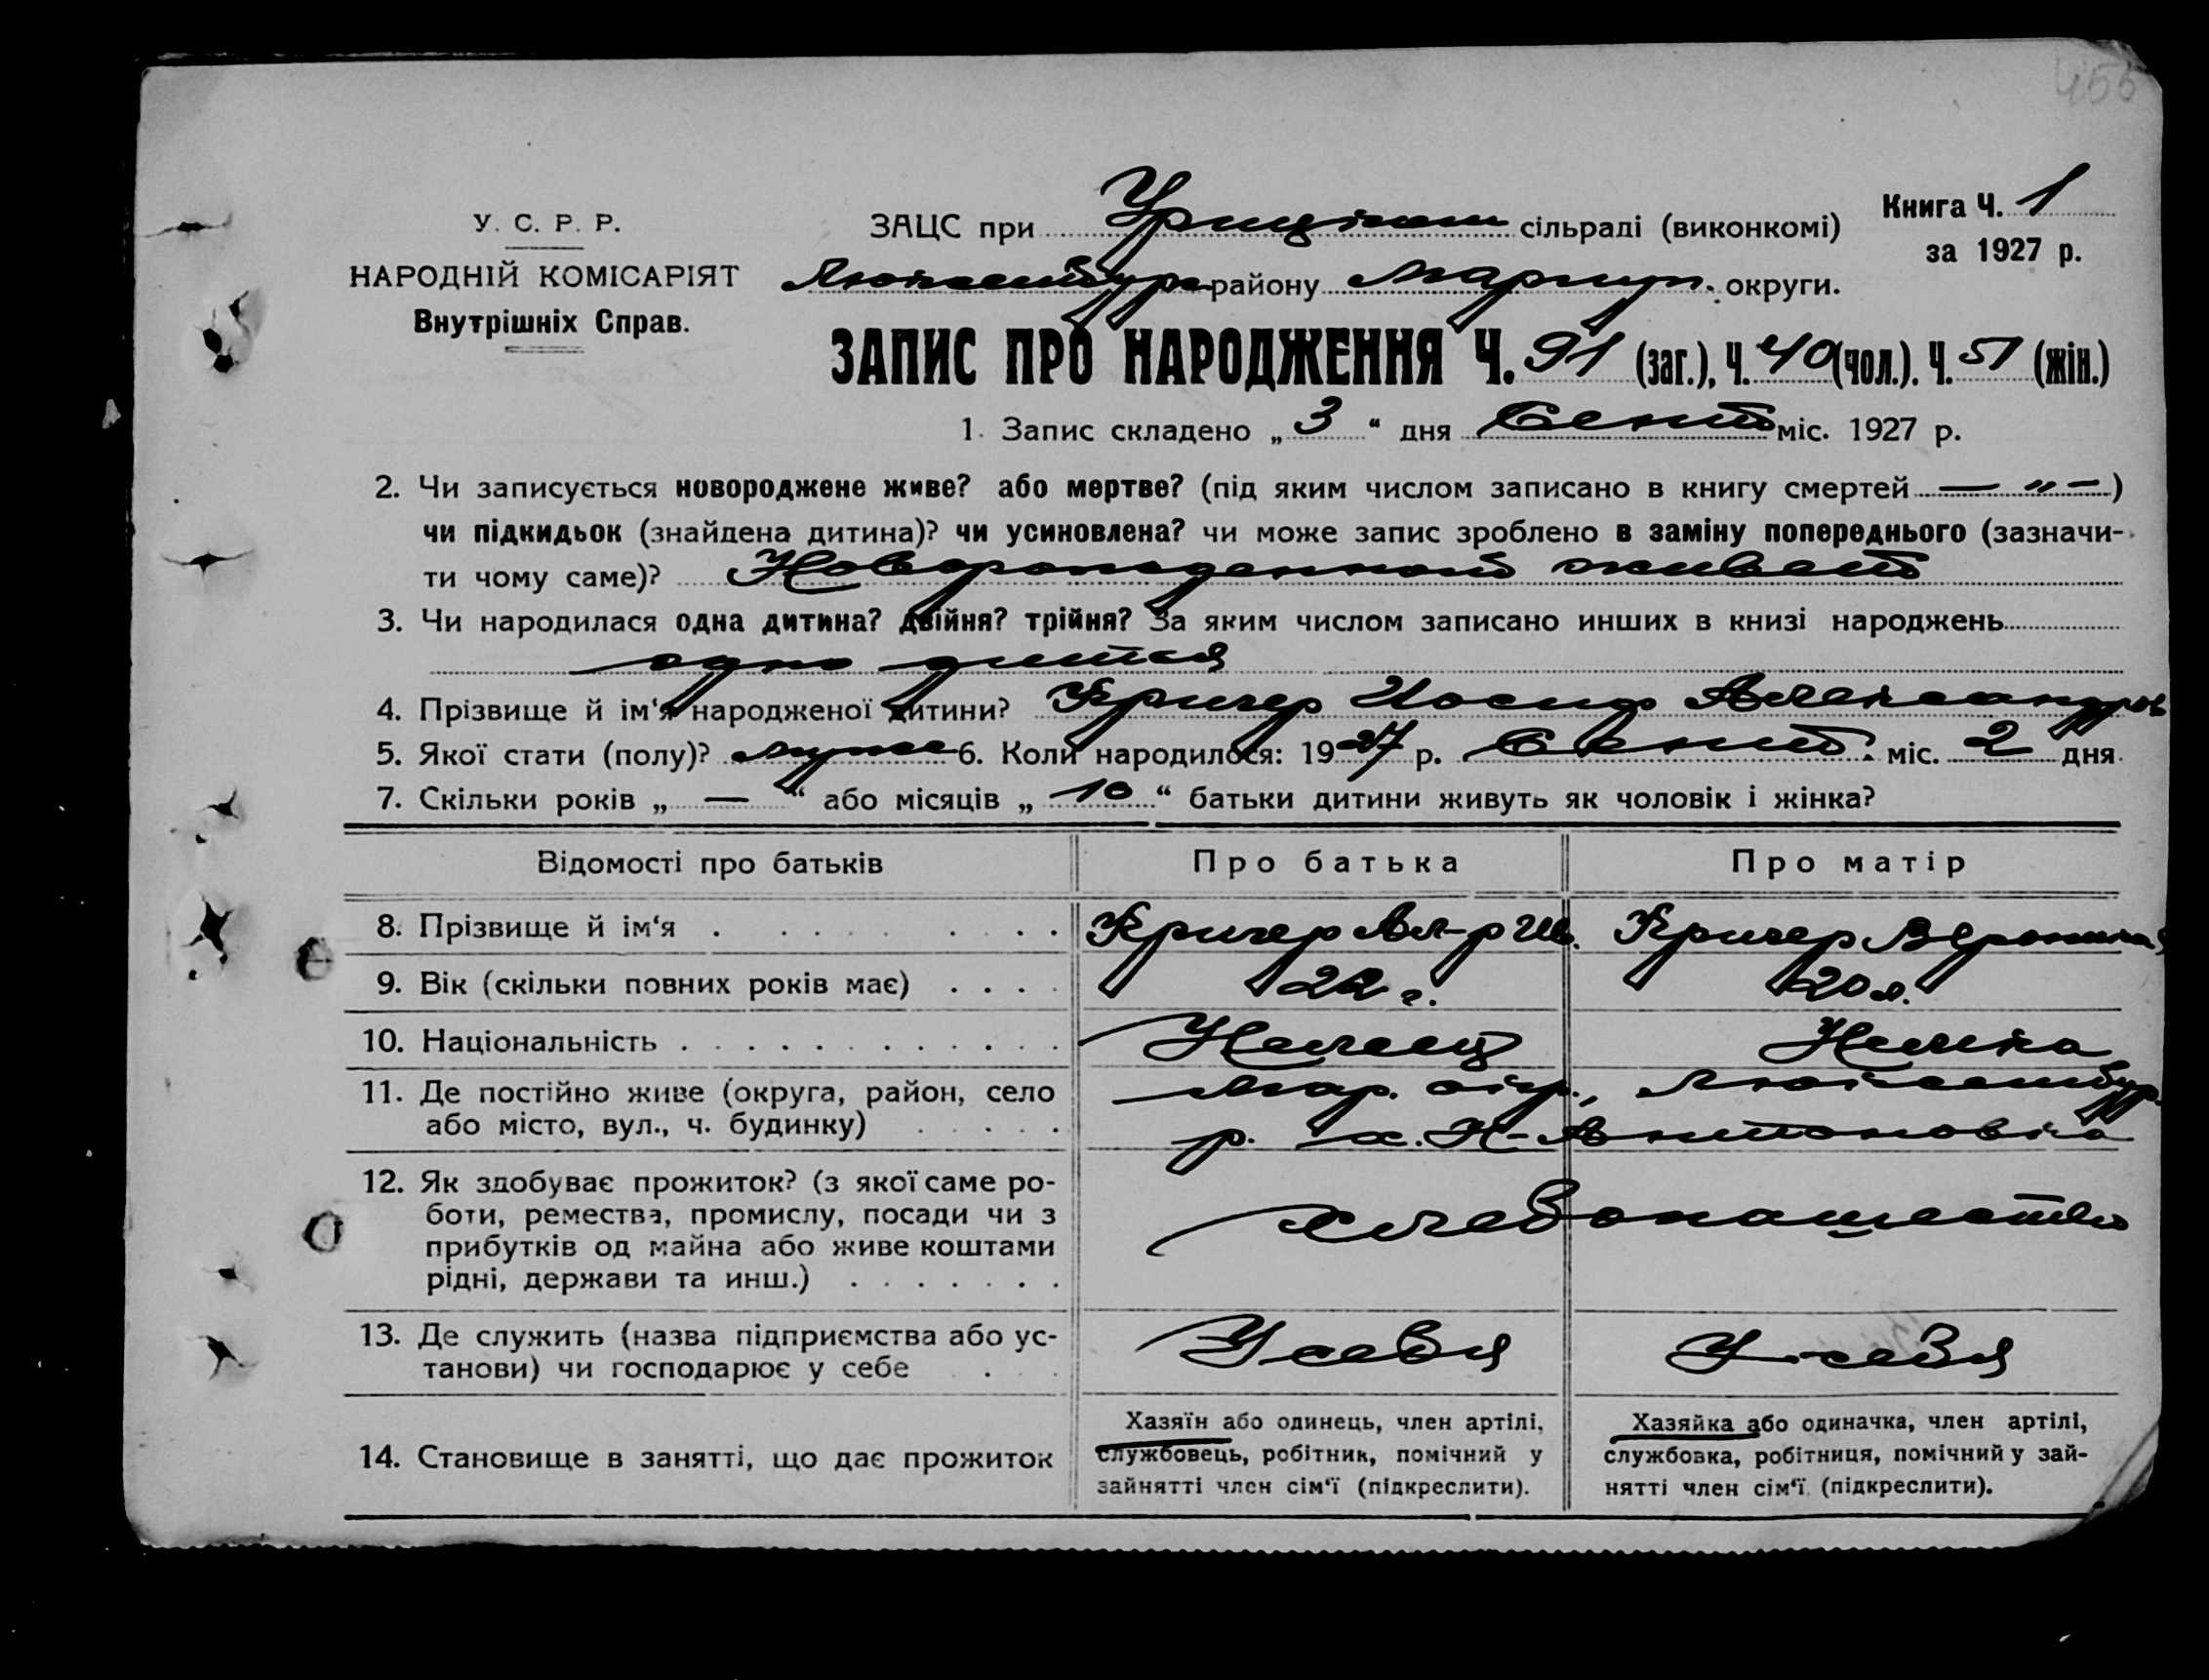 455
У. С. Р. Р.
НАРОДНІЙ КОМІСАРІЯТ
Внутрішніх Справ.
ЗАЦС при Урицком сільраді (виконкомі)
Люксембург району Мариуп. округи.
Книга Ч. 1
за 1927 р.
ЗАПИС ПРО НАРОДЖЕННЯ Ч. 91 (заг.), Ч. 40 (чол.). Ч. 51 (жін.)
1. Запис складено „ 3 “ дня Сент міс. 1927 р.
2. Чи записується новороджене живе? або мертве? (під яким числом записано в книгу смертей — „ —)
чи підкидьок (знайдена дитина)? чи усиновлена? чи може запис зроблено в заміну попереднього (зазначи-
ти чому саме)? Новорожденной живет
3. Чи народилася одна дитина? двійня? трійня? За яким числом записано инших в книзі народжень
одно дится
4. Прізвище й ім‘я народженої дитини? Кригер Иосиф Александров
5. Якої стати (полу)? муже 6. Коли народилося: 1927 р. Сент. міс. 2 дня
7. Скільки років „ — “ або місяців „ 10 “ батьки дитини живуть як чоловік і жінка?
Відомості про батьків Про батька Про матір
8. Прізвище й ім‘я Кригер Ал-р Ив. Кригер Вероника
9. Вік (скільки повних років має) 22 г. 20 л.
10. Національність Немец Немка
11. Де постійно живе (округа, район, село Мар. окр., Люксембур.
або місто, вул., ч. будинку) р. х. Н-Антоновка
12. Як здобуває прожиток? (з якої саме ро-
боти, ремества, промислу, посади чи з хлебопашество
прибутків од майна або живе коштами
рідні, держави та инш.)
13. Де служить (назва підприємства або ус- У себя У себя
танови) чи господарює у себе
14. Становище в занятті, що дає прожиток
Хазяїн або одинець, член артілі,
службовець, робітник, помічний у
зайнятті член сім‘ї (підкреслити).
Хазяйка або одиначка, член артілі,
службовка, робітниця, помічний у зай-
нятті член сім‘ї (підкреслити).